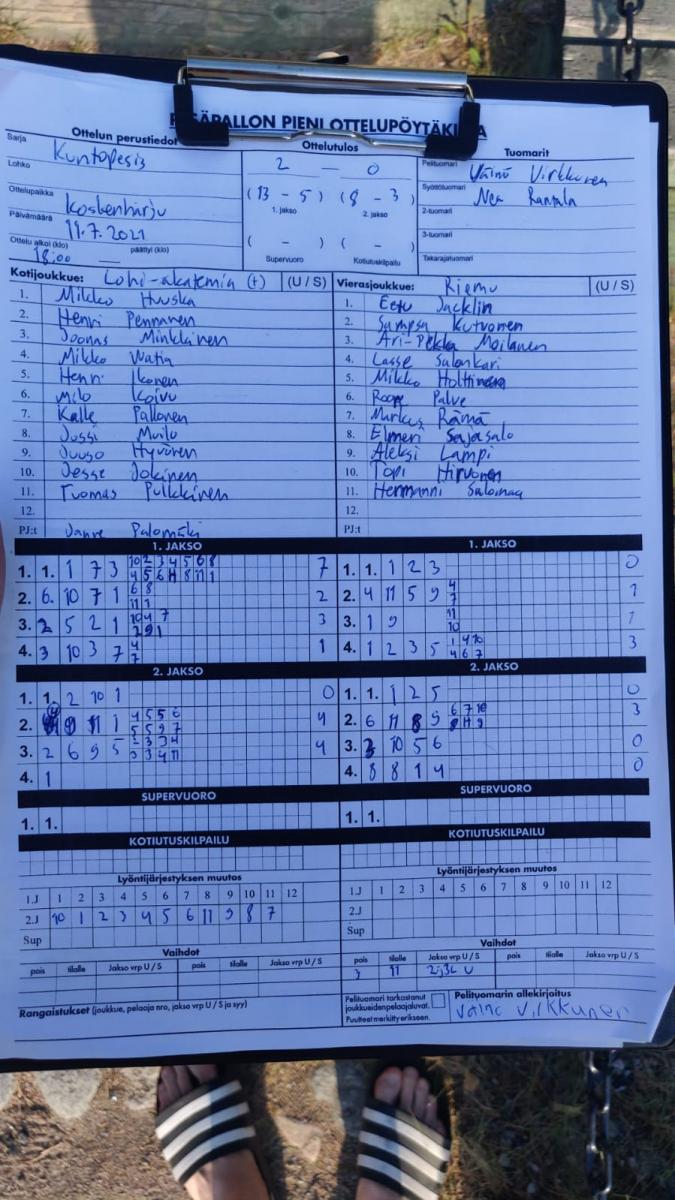 PESÄPALLON PIENI OTTELUPÖYTÄKIRJA
Ottelun perustiedot
Ottelutulos
Tuomarit
Sarja Kuntopesis
Lohko
Ottelupaikka Koskenharju
Päivämäärä 11.7.2021
Ottelu alkoi (klo) 18:00 päättyi (klo)
2 — 0
(13 - 5) (8 - 3)
1. jakso 2. jakso
( - ) ( - )
Supervuoro Kotiutuskilpailu
Pelituomari Väinö Virkkunen
Syöttötuomari Nea Rantala
2-tuomari
3-tuomari
Takarajatuomari
Kotijoukkue: Lohi-akatemia (t) (U / S)
1. Mikko Huuska
2. Henri Pennanen
3. Joonas Minkkinen
4. Mikko Watia
5. Henri Ikonen
6. Milo Koivu
7. Kalle Pallonen
8. Jussi Muilu
9. Juuso Hyvönen
10. Jesse Jokinen
11. Tuomas Pulkkinen
12.
PJ:t Janne Palomäki
Vierasjoukkue: Riemu (U / S)
1. Eetu Jacklin
2. Sampsa Kutvonen
3. Ari-Pekka Moilanen
4. Lasse Salonkari
5. Mikko Holttinen
6. Roope Palve
7. Markus Rämä
8. Elmeri Sajasalo
9. Aleksi Lampi
10. Topi Hirvonen
11. Hermanni Salomaa
12.
PJ:t
1. JAKSO
1. 1. 1 7 3 10 2 3 4 5 6 8 7
4 5 6 11 8 11 1
2. 6. 10 7 1 6 8 2
11 1
3. 2 5 2 1 10 4 7 3
2 9 1
4. 3 10 3 7 4 1
7
2. JAKSO
1. 1. 2 10 1 0
2. 9 11 1 4 5 5 6 4
5 5 9 7
3. 2 6 9 5 2 3 3 4 4
3 3 4 11
4. 1
SUPERVUORO
1. 1.
KOTIUTUSKILPAILU
1. JAKSO
1. 1. 1 2 3 0
2. 4 11 5 9 4 1
7
3. 1 9 11 1
10
4. 1 2 3 5 1 4 10 3
4 6 7
2. JAKSO
1. 1. 1 2 5 0
2. 6 11 8 9 6 7 10 3
8 11 9
3. 3 10 5 6 0
4. 8 8 1 4 0
SUPERVUORO
1. 1.
KOTIUTUSKILPAILU
Lyöntijärjestyksen muutos
1.J 1 2 3 4 5 6 7 8 9 10 11 12
2.J 10 1 2 3 4 5 6 11 9 8 7
Sup
Vaihdot
pois tilalle Jakso vrp U / S pois tilalle Jakso vrp U / S
Rangaistukset (joukkue, pelaaja nro, jakso vrp U / S ja syy)
Lyöntijärjestyksen muutos
1.J 1 2 3 4 5 6 7 8 9 10 11 12
2.J
Sup
Vaihdot
pois tilalle Jakso vrp U / S pois tilalle Jakso vrp U / S
3 11 2j3L U
Pelituomari tarkastanut
joukkueiden pelaajaluvat.
Puutteet merkitty erikseen.
Pelituomarin allekirjoitus
Väinö Virkkunen